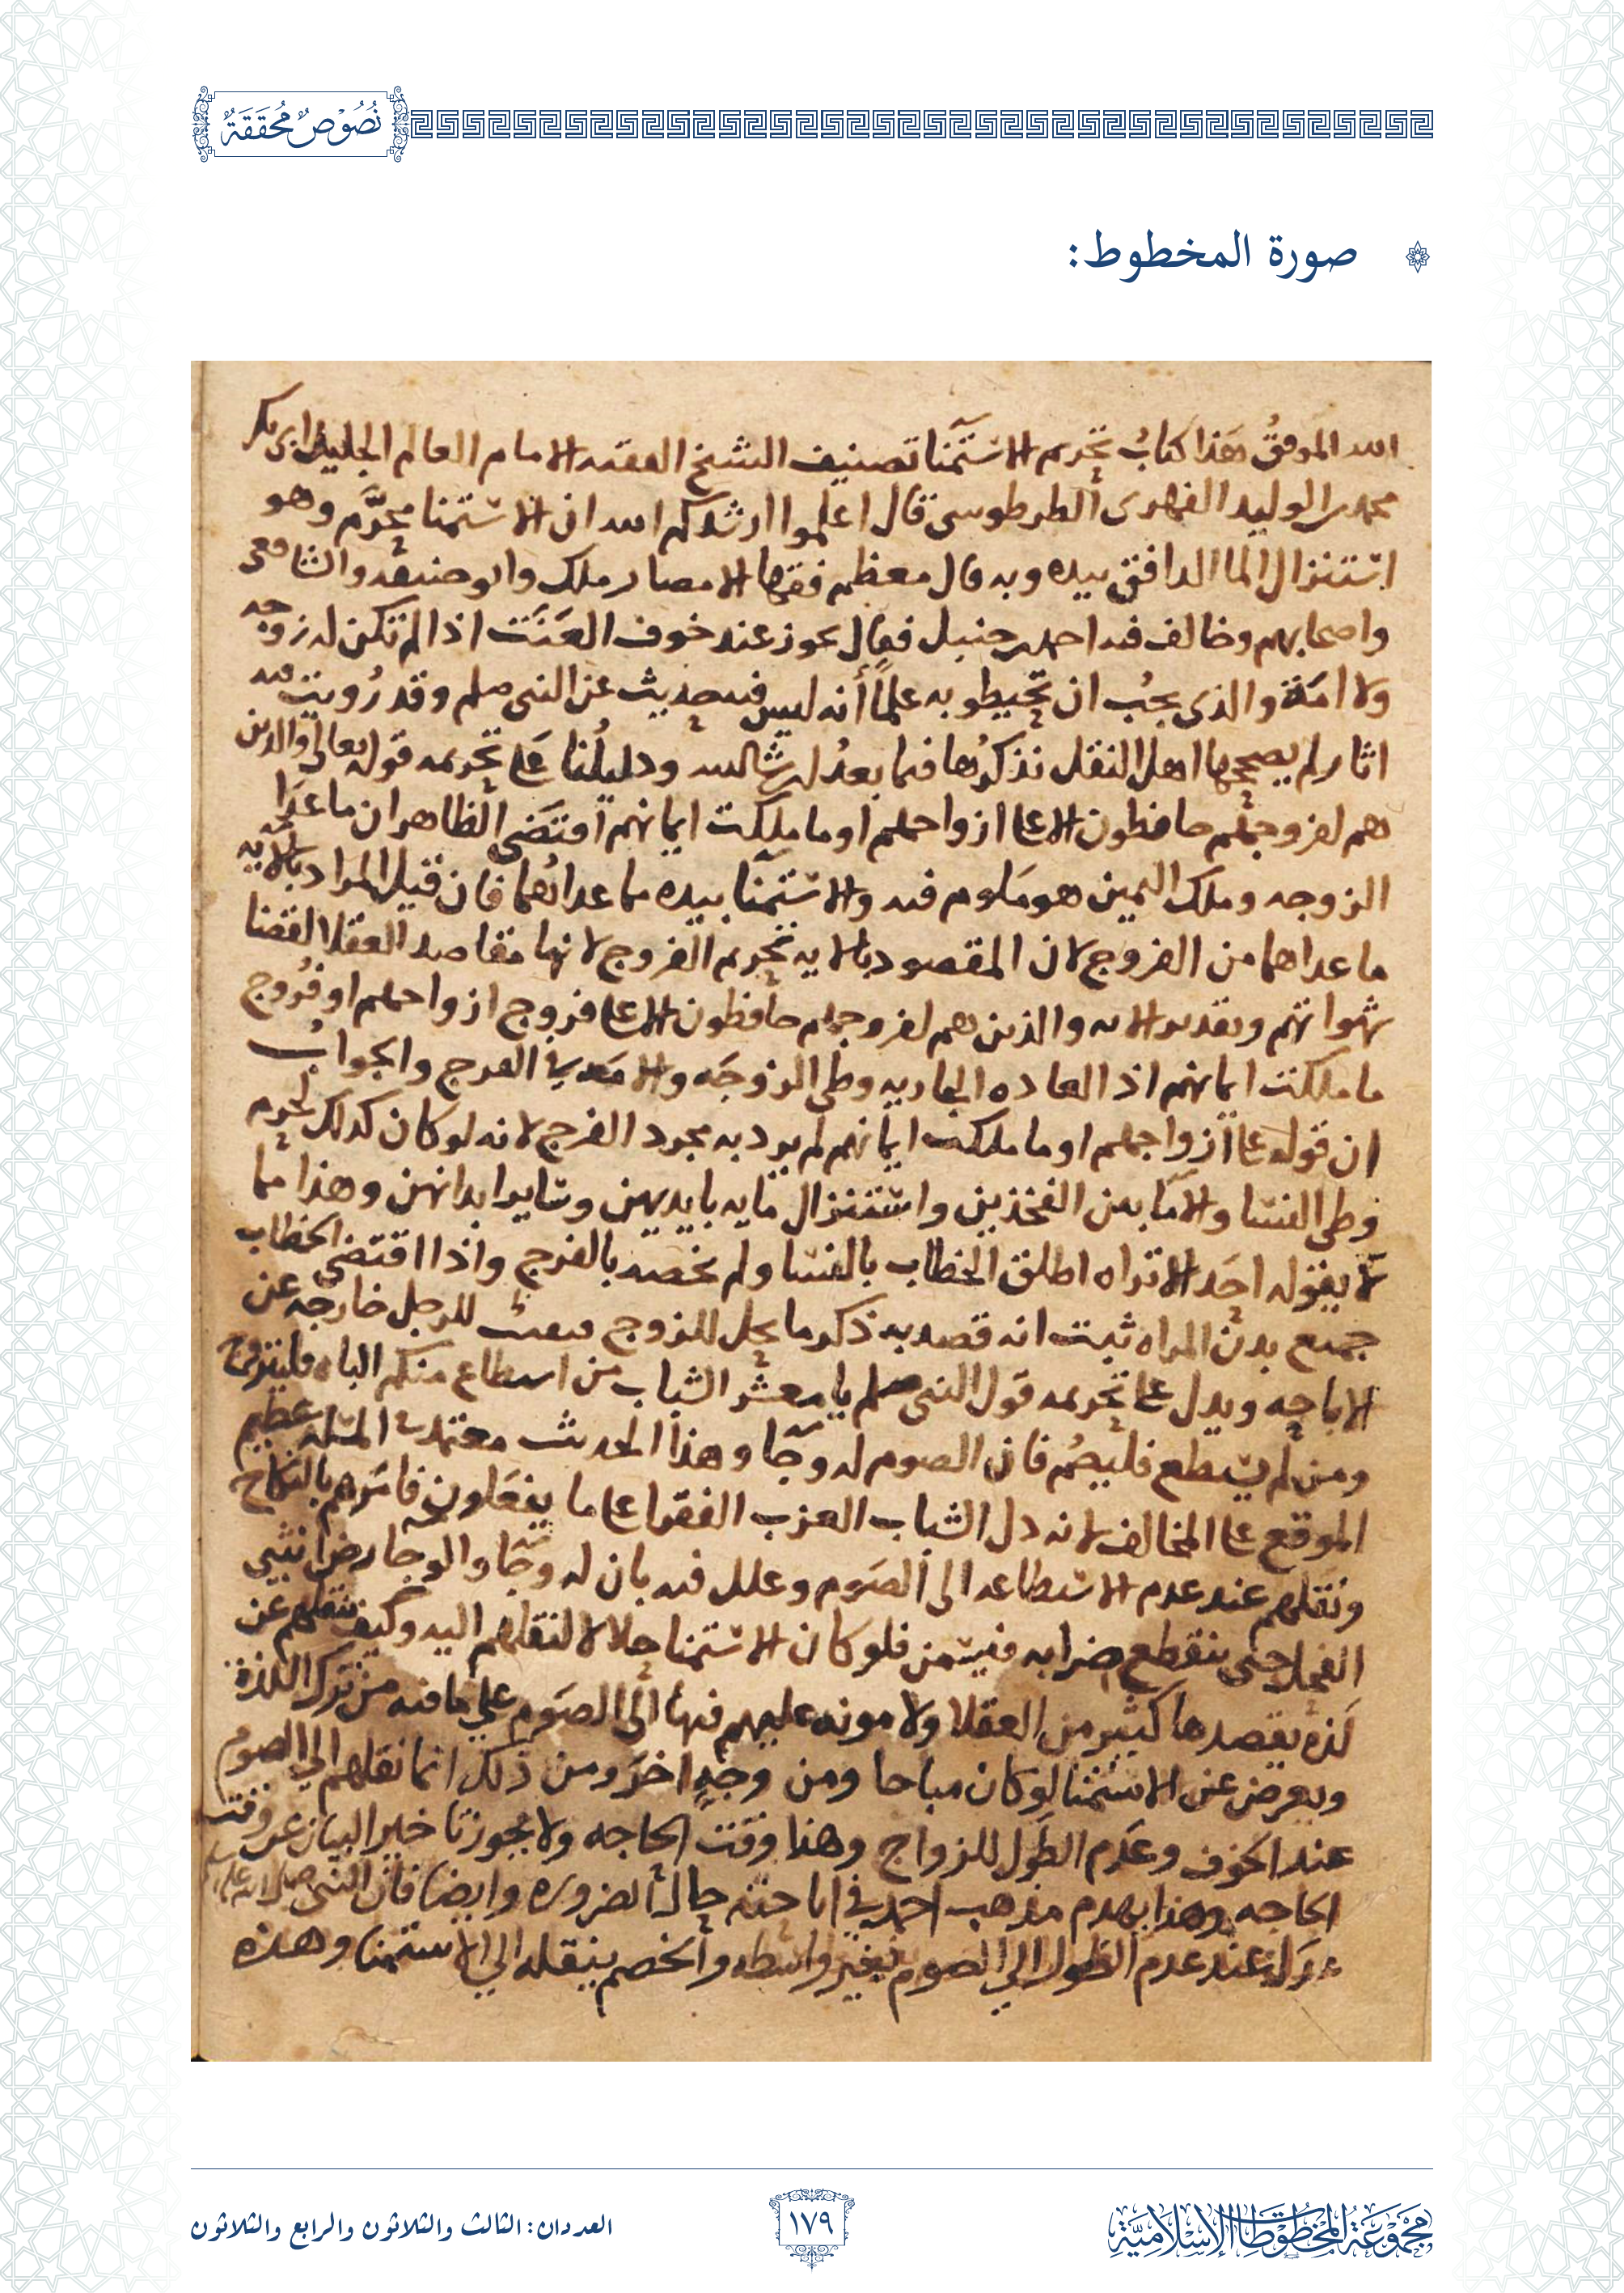 نُصُوْصٌ مُحَقَّقَةٌ
صورة المخطوط:
الله الموفقُ هَذا كتابُ تحريم الاستمنا تصنيف الشيخ الفقيه الامام العالم الجليل ابى بكر
محمد بن الوليد الفهرى الطرطوسى قال اعلموا ارشدكم الله ان الاستمنا محرَّم وهو
استنزال الما الدافق بيده وبه قال معظم فقها الامصار ملك وابو حنيفه والشافعى
واصحابهم وخالف فيه احمد بن حنبل فقال يجوز عند خوف العَنَت اذا لم تكن له زوجه
ولا امَة والذى يجبُ ان تحيطو به علمًا أنه ليس فيه حديث عن النبى صلم وقد رُويت فيه
اثار لم يصححها اهل النقل نذكرُها فيما بعدُ ان شا الله ودليلُنا على تحريمه قوله تعالى والذين
هم لفروجهم حافظون الا على ازواجهم او ما ملكت ايمانهم اقتضَى الظاهر ان ما عدَا
الزوجه وملك اليمين هو مَلوم فيه والاستمنا بيده مما عداهُما فان قيل المراد بالايه
ما عداهما من الفروج لان المقصود بالايه تحريم الفروج لانها مقاصد العقلا لقضا
شهواتهم وتقدير الايه والذين هم لفروجهم حافظون الا على فروج ازواجهم او فُروج
ما ملكت ايمانهم اذ العاده الجاريه وطى الزوجَه والامَه فى الفرج والجوابُ
ان قوله على ازواجهم او ما ملكت ايمانهم لم يرد به مجرد الفرج لانه لو كان كذلك لحرم
وطى النسا والاما بين الفخذين واستنزال مايه بايديهن وساير ابدانهن وهذا مما
لا يقوله احَد الا تراه اطلق الخطاب بالنسا ولم يخصه بالفرج واذا اقتضى الخطاب
جميع بدن المراه ثبت انه قصد به ذكر ما يحل للزوج للرجل خارجه عن
الاباحه ويدل على تحريمه قول النبى صلم يا معشر الشباب من استطاع منكم الباه فليتزوج
ومن لم يستطع فليصُم فان الصوم له وِجَا وهذا الحديث معتمد فى المسله عظيم
الموقع على المخالف لانه دل الشباب العزب الفقرا على ما يفعَلونه فامَرهم بالنكاح
ونقلهم عند عدم الاستطاعه الى الصَوم وعلل فيه بان له وِجَا والوجا رض انثيى
الفحل حتى ينقطع ضرابه فيسمن فلو كان الاستمنا حلالا لنقلهم اليه وكيف ينقلهم عن
لَذه يقصدها كثير من العقلا ولا مونه عليهم فيها الى الصَوم على ما فيه من ترك اللذة
ويعرض عن الاستمنا لو كان مباحا ومن وجهٍ اخرَ ومن ذلك انما نقلهم الى الصوم
عند الخوف وعَدم الطَول للزواج وهذا وقت الحاجه ولا يجوز تاخير البيان عن وقت
الحاجه وهذا يهدم مذهب احمد فى اباحته حال الضروره وايضا فان النبى صلى الله عليه
عدل عند عدم الطول الى الصوم بغير واسطه والخصم ينقله الى الاستمنا وهذه
مَجْمُوعَةُ المَخْطُوطَاتِ الإِسْلَامِيَّةِ
١٧٩
العددان: الثالث والثلاثون والرابع والثلاثون